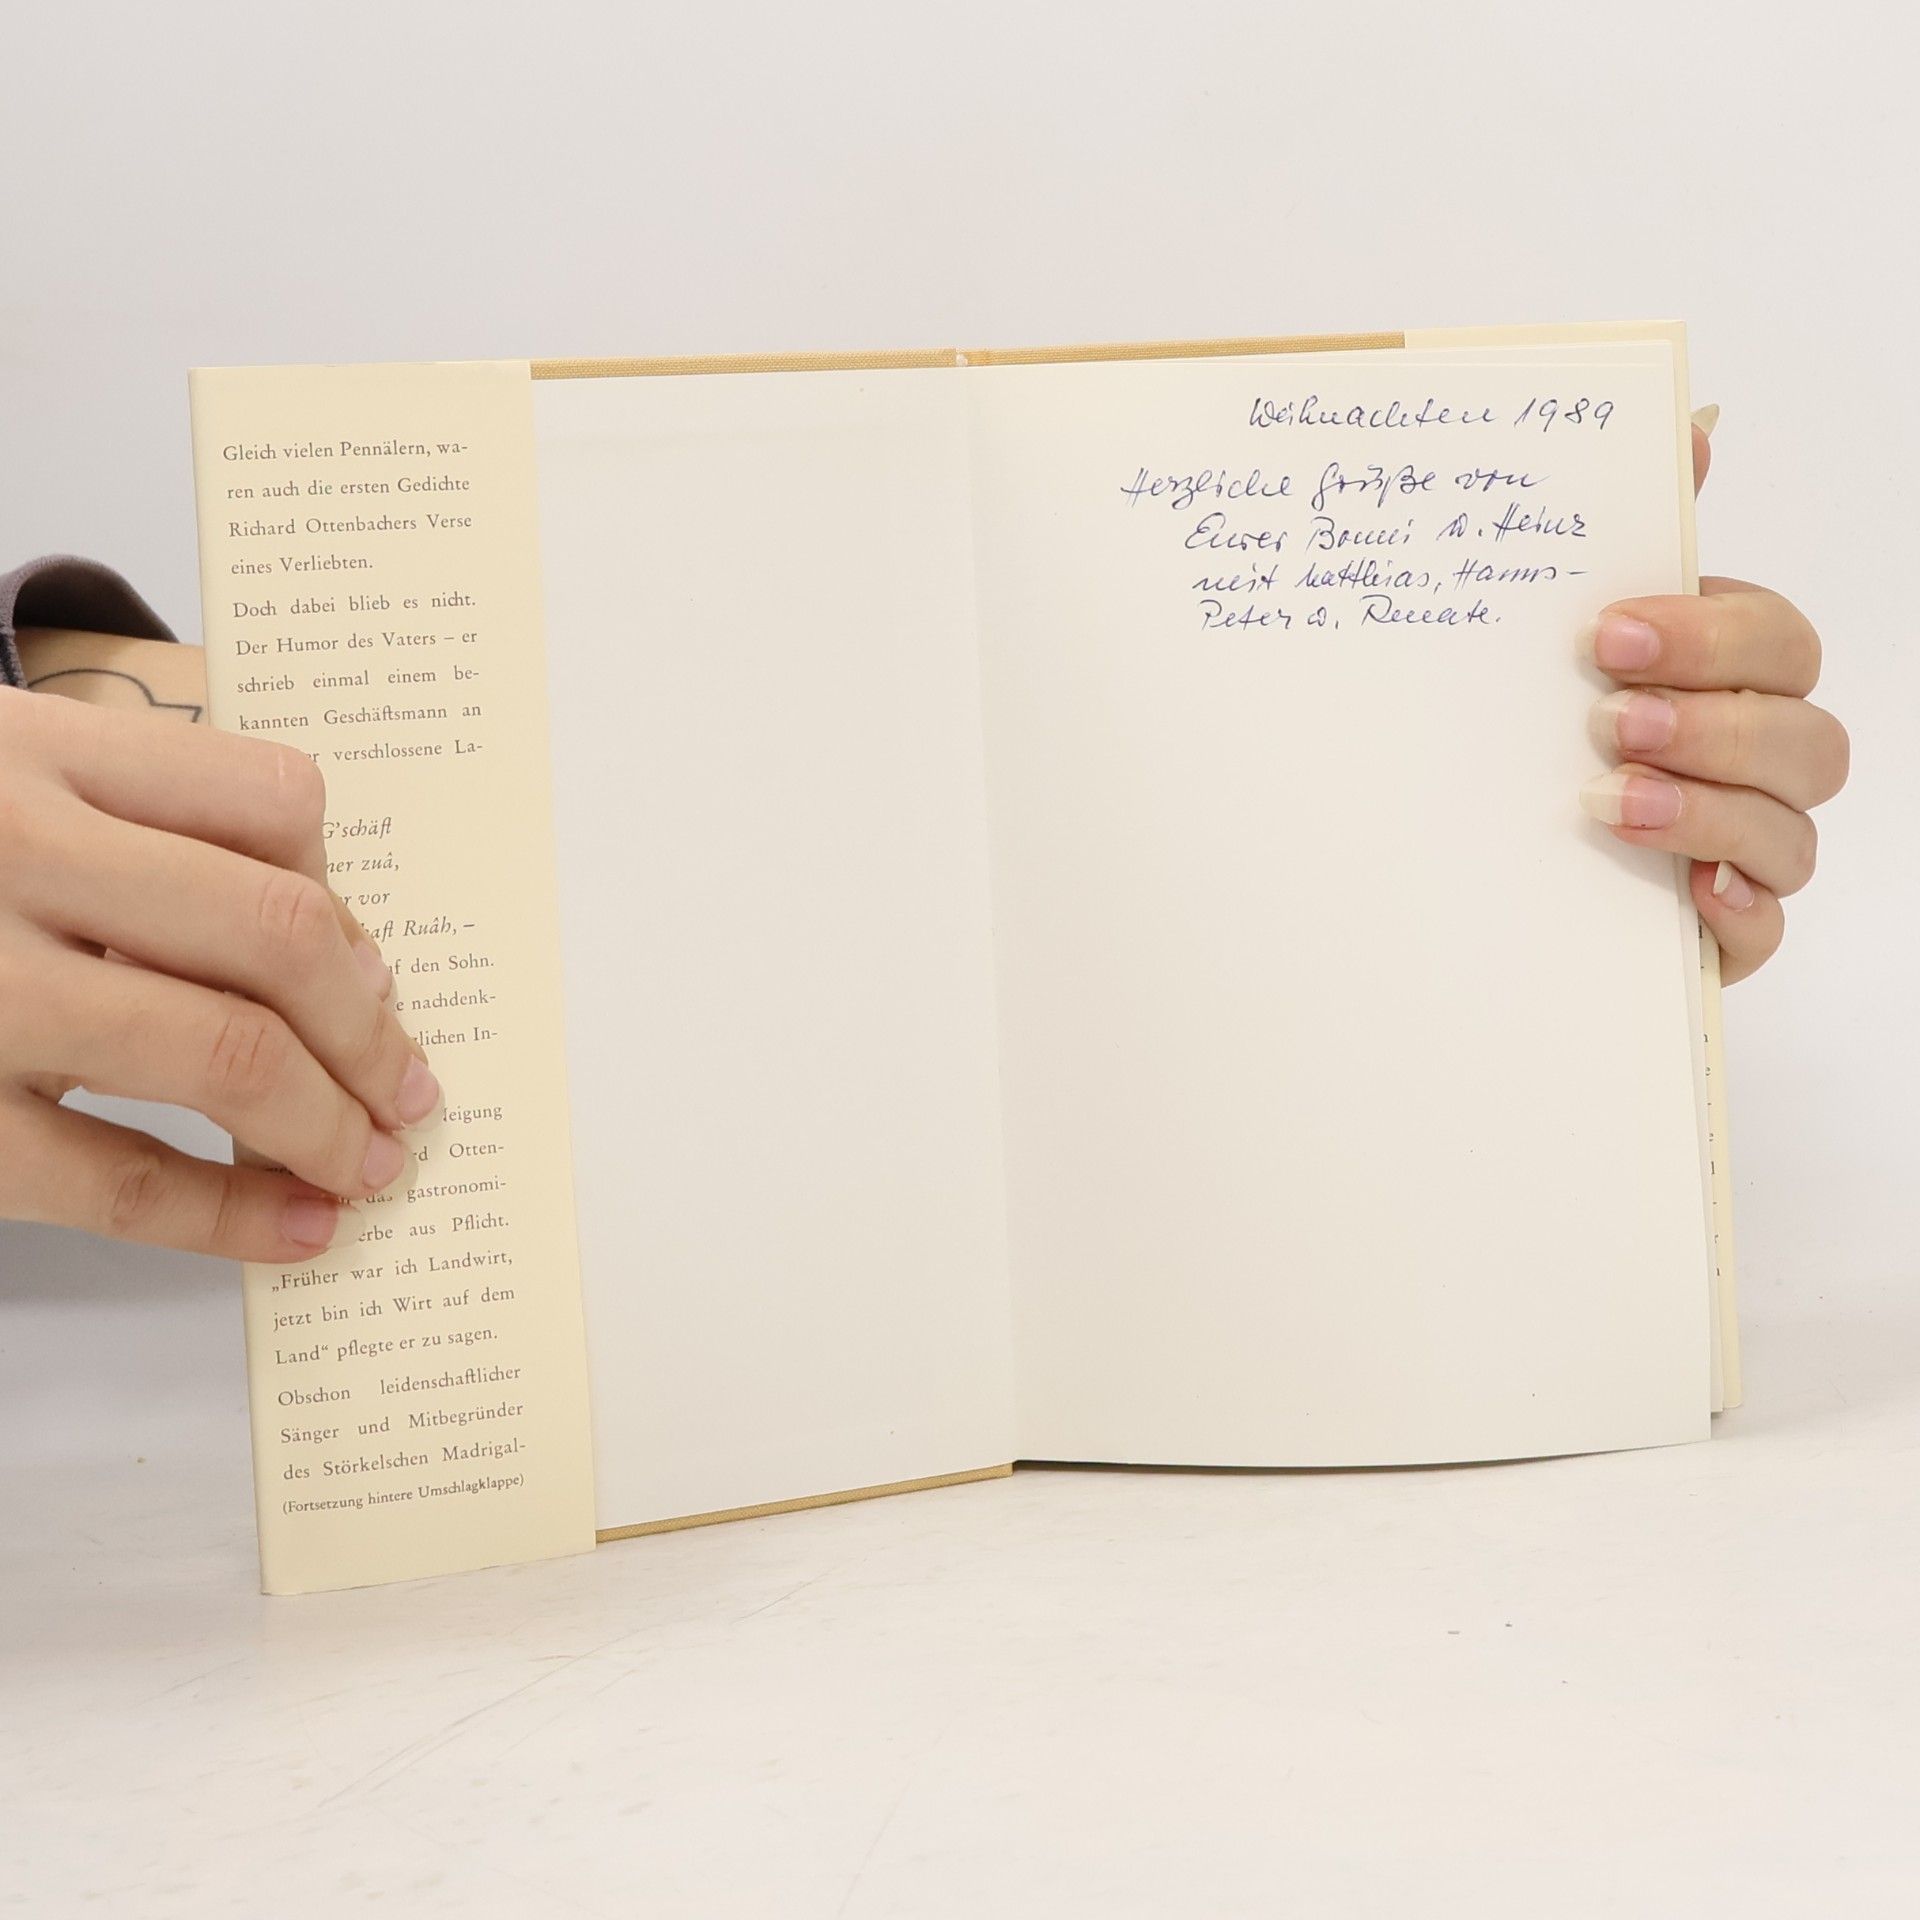 Gleich vielen Pennälern, wa-
ren auch die ersten Gedichte
Richard Ottenbachers Verse
eines Verliebten.
Doch dabei blieb es nicht.
Der Humor des Vaters – er
schrieb einmal einem be-
kannten Geschäftsmann an
verschlossene La-
G'schäft
zuâ,
vor
Ruâh, –
den Sohn.
nachdenk-
In-
Otten-
das gastronomi-
aus Pflicht.
„Früher war ich Landwirt,
jetzt bin ich Wirt auf dem
Land“ pflegte er zu sagen.
Obschon leidenschaftlicher
Sänger und Mitbegründer
des Störkelschen Madrigal-
(Fortsetzung hintere Umschlagklappe)
Weihnachten 1989
Herzliche Grüße von
Eurer u. Heinz
mit Matthias, Hanns-
Peter u. Renate.